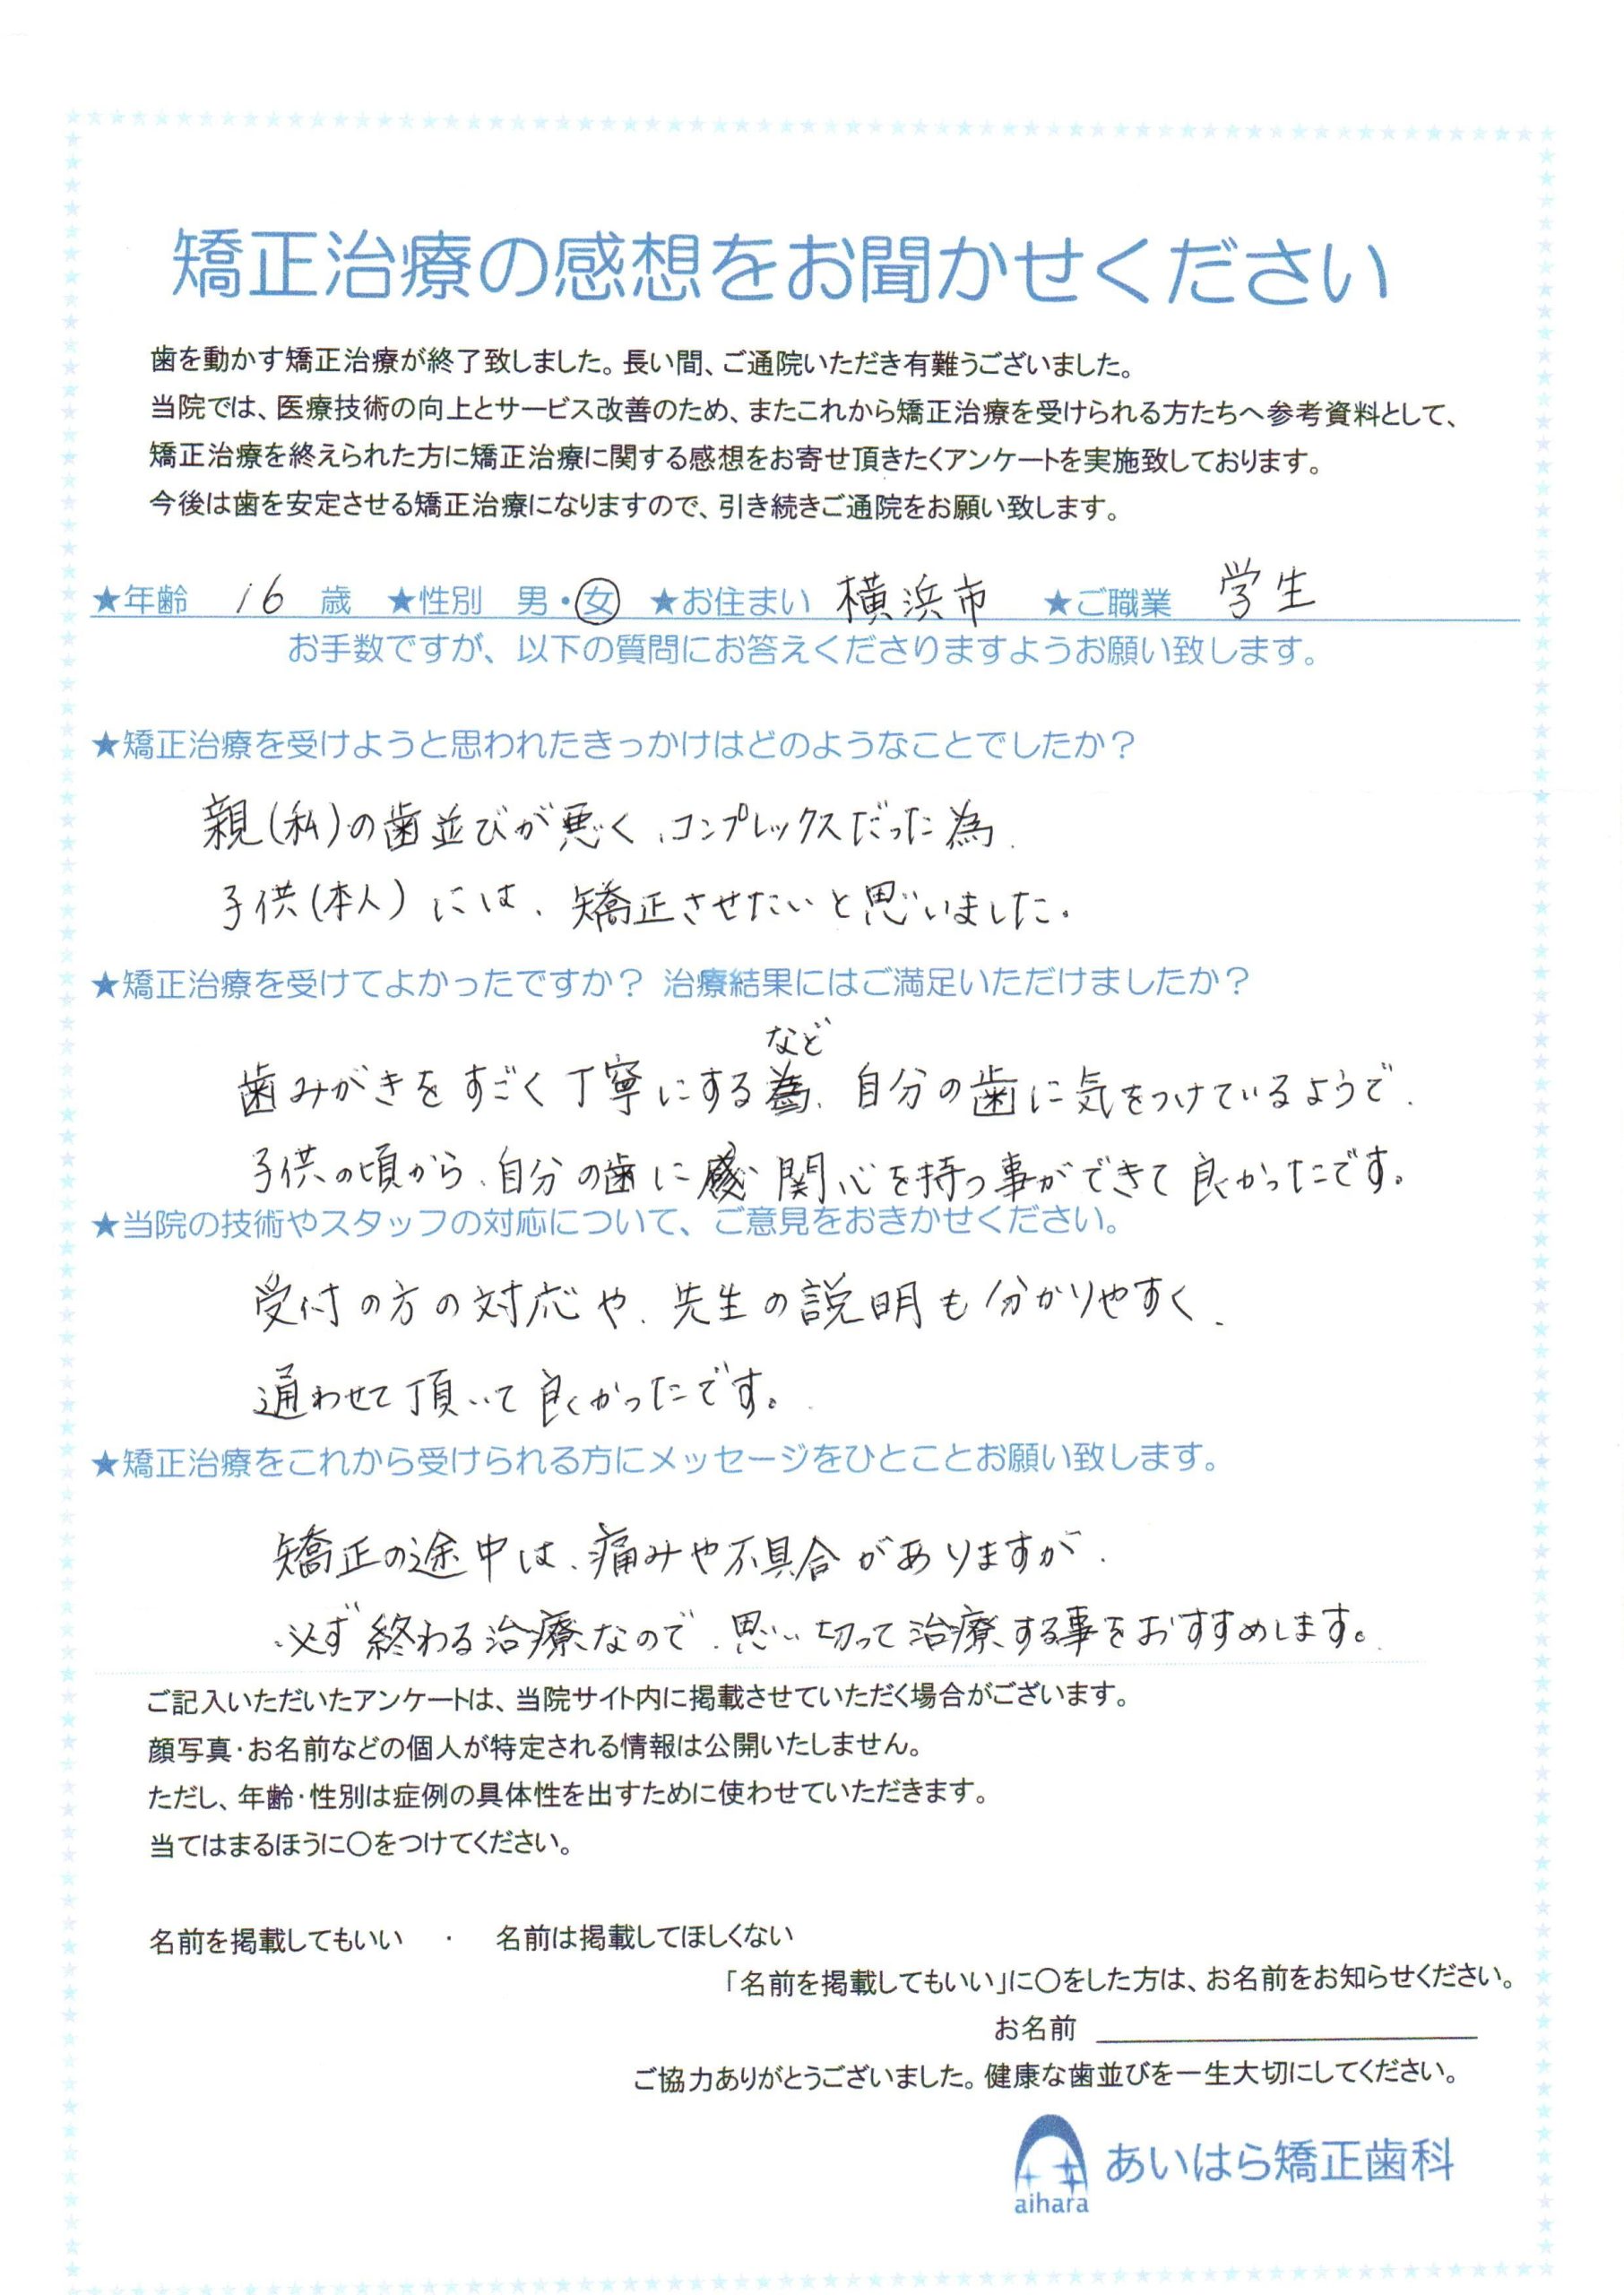 矯正治療の感想をお聞かせください
歯を動かす矯正治療が終了致しました。長い間、ご通院いただき有難うございました。
当院では、医療技術の向上とサービス改善のため、またこれから矯正治療を受けられる方たちへ参考資料として、
矯正治療を終えられた方に矯正治療に関する感想をお寄せ頂きたくアンケートを実施致しております。
今後は歯を安定させる矯正治療になりますので、引き続きご通院をお願い致します。
★年齢 16 歳 ★性別 男・女 ★お住まい 横浜市 ★ご職業 学生
お手数ですが、以下の質問にお答えくださりますようお願い致します。
★矯正治療を受けようと思われたきっかけはどのようなことでしたか？
親(私)の歯並びが悪く、コンプレックスだった為、
子供(本人)には、矯正させたいと思いました。
★矯正治療を受けてよかったですか？ 治療結果にはご満足いただけましたか？
など
歯みがきをすごく丁寧にする為、自分の歯に気をつけているようで、
子供の頃から、自分の歯に感関心を持つ事ができて良かったです。
★当院の技術やスタッフの対応について、ご意見をおきかせください。
受付の方の対応や、先生の説明も分かりやすく、
通わせて頂いて良かったです。
★矯正治療をこれから受けられる方にメッセージをひとことお願い致します。
矯正の途中は、痛みや不具合がありますが、
必ず終わる治療なので、思い切って治療する事をおすすめします。
ご記入いただいたアンケートは、当院サイト内に掲載させていただく場合がございます。
顔写真・お名前などの個人が特定される情報は公開いたしません。
ただし、年齢・性別は症例の具体性を出すために使わせていただきます。
当てはまるほうに〇をつけてください。
名前を掲載してもいい ・ 名前は掲載してほしくない
「名前を掲載してもいい」に〇をした方は、お名前をお知らせください。
お名前
ご協力ありがとうございました。健康な歯並びを一生大切にしてください。
あいはら矯正歯科
aihara